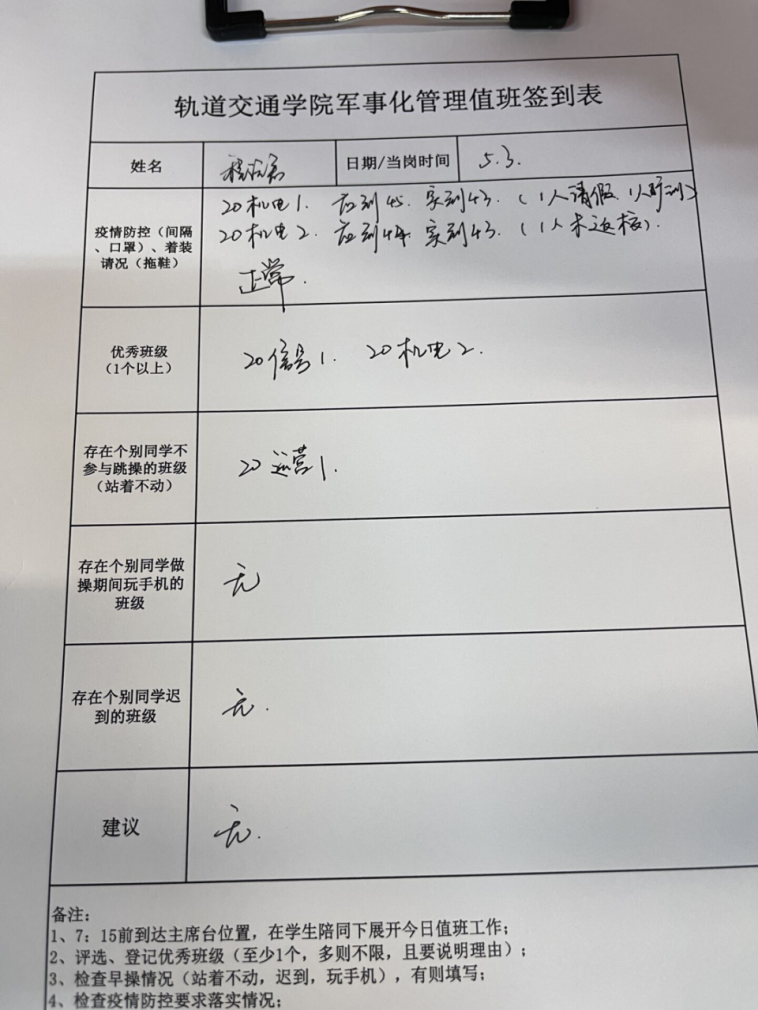 轨道交通学院军事化管理值班签到表
姓名
日期/当岗时间
5.3.
疫情防控（间隔
、口罩）、着装
请况（拖鞋）
20机电1. 应到45. 实到43. （1人请假 1人旷训）
20机电2. 应到44 实到43. （1人未返校）.
正常.
优秀班级
（1个以上）
20信号1. 20机电2.
存在个别同学不
参与跳操的班级
（站着不动）
20运营1.
存在个别同学做
操期间玩手机的
班级
无
存在个别同学迟
到的班级
无.
建议
无.
备注：
1、7：15前到达主席台位置，在学生陪同下展开今日值班工作；
2、评选、登记优秀班级（至少1个，多则不限，且要说明理由）；
3、检查早操情况（站着不动，迟到，玩手机），有则填写；
4、检查疫情防控要求落实情况；